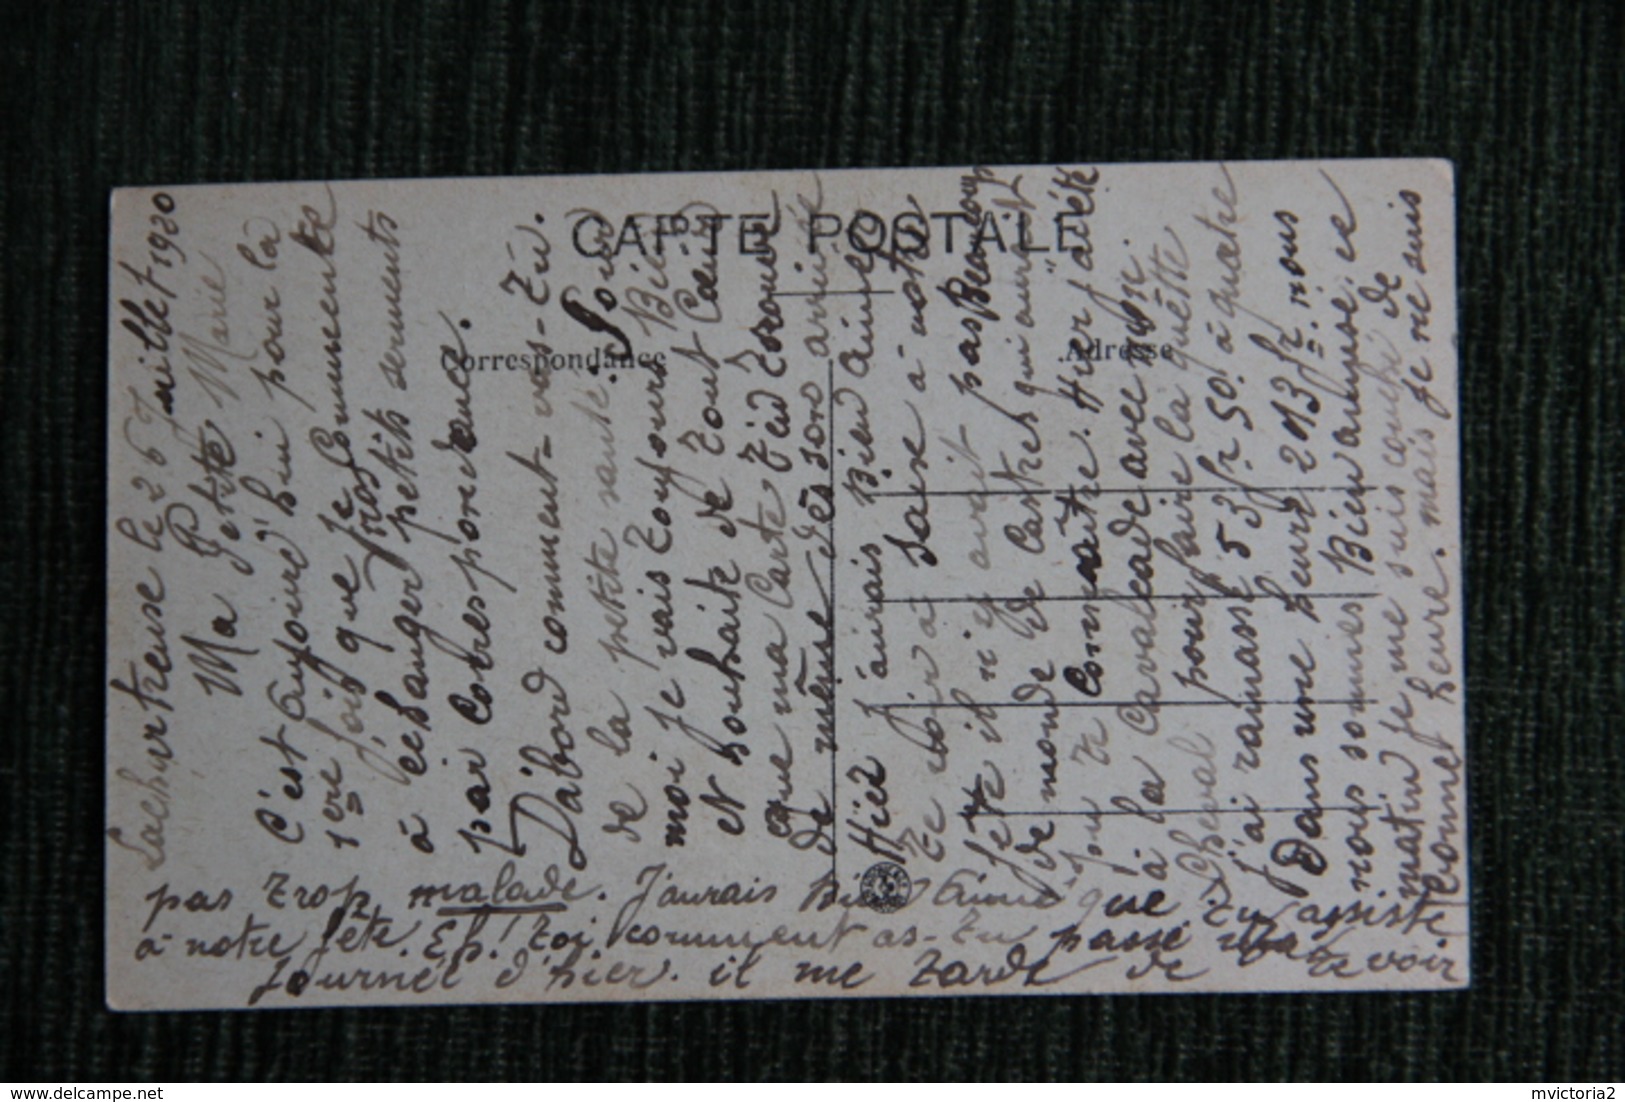 CARTE POSTALE
Correspondance
Adresse
Lachartreuse le 26 Juillet 1920
Ma Petite Marie
C'est aujourd'hui pour la
1ere fois que je commence
à échanger nos petits serments
par correspondance.
D'abord comment-vas-tu.
de la petite santé.
moi je vais toujours Bien
et souhaite de tout Cœur
que ma Carte t'en trouve
de même dès son arrivée
Hier j'aurais Bien aimé
te voir à Saïx à notre
fête il n'y avait pas Beaucoup
de monde de Castres qui aurait
pu te connaître. Hier j'ai été
à la Cavalcade avec mon
Cheval pour faire la quête
j'ai ramassé 53 fr 50. à quatre
Dans une heure 213 fr. nous
nous sommes Bien amusé, ce
matin je me suis couché de
Bonne heure. mais je ne suis
pas trop malade. J'aurais Bien aimé que tu assiste
à notre fête. Eh! toi comment as-tu passé la
journée d'hier. il me tarde de te voir
delcampe.net
mvictoria2